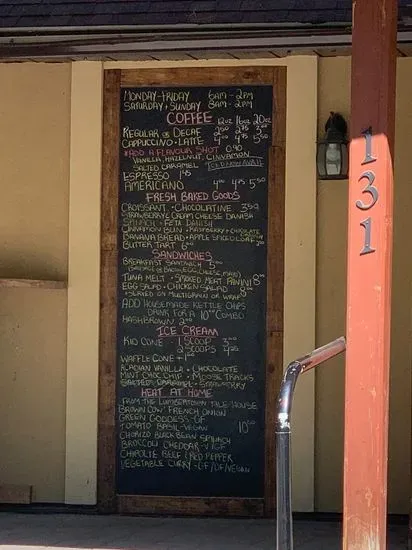 MONDAY-FRIDAY 6AM-2PM
SATURDAY + SUNDAY 8AM-2PM
COFFEE 12oz 16oz 20oz
REGULAR OR DECAF 2.50 2.75 3.00
CAPPUCCINO • LATTE 4.00 4.75 5.50
*ADD A FLAVOUR SHOT 0.90
VANILLA, HAZELNUT, CINNAMON
SALTED CARAMEL
ESPRESSO 1.45
AMERICANO 4.00 4.75 5.50
FRESH BAKED GOODS
CROISSANT • CHOCOLATINE 3.50
STRAWBERRY CREAM CHEESE DANISH
SPINACH + FETA DANISH
CINNAMON BUN • RASPBERRY + CHOCOLATE
BANANA BREAD • APPLE SPICED LOAF
BUTTER TART 6.00
SANDWICHES
BREAKFAST SANDWICH 5.00
(SAUSAGE OR BACON, EGG, CHEESE, MAYO)
TUNA MELT • SMOKED MEAT PANINI 8.00
EGG SALAD • CHICKEN SALAD 8.00
*SERVED ON MULTIGRAIN OR WRAP
ADD HOUSEMADE KETTLE CHIPS
DRINK FOR A 10.00 COMBO
HASHBROWN 2.00
ICE CREAM
KID CONE 1 SCOOP 3.00
2 SCOOPS 4.25
WAFFLE CONE +1.00
ACADIAN VANILLA • CHOCOLATE
MINT CHOC CHIP • MOOSE TRACKS
SALTED CARAMEL • STRAWBERRY
HEAT AT HOME
FROM THE LUMBERTOWN ALE HOUSE
BROWN COW FRENCH ONION
GREEN GODDESS-GF
TOMATO BASIL-VEGAN 10.00
CHORIZO BLACK BEAN SPINACH
BROCCOLI CHEDDAR-V/GF
CHIPOLTE BEEF + RED PEPPER
VEGETABLE CURRY-GF/DF/VEGAN
131